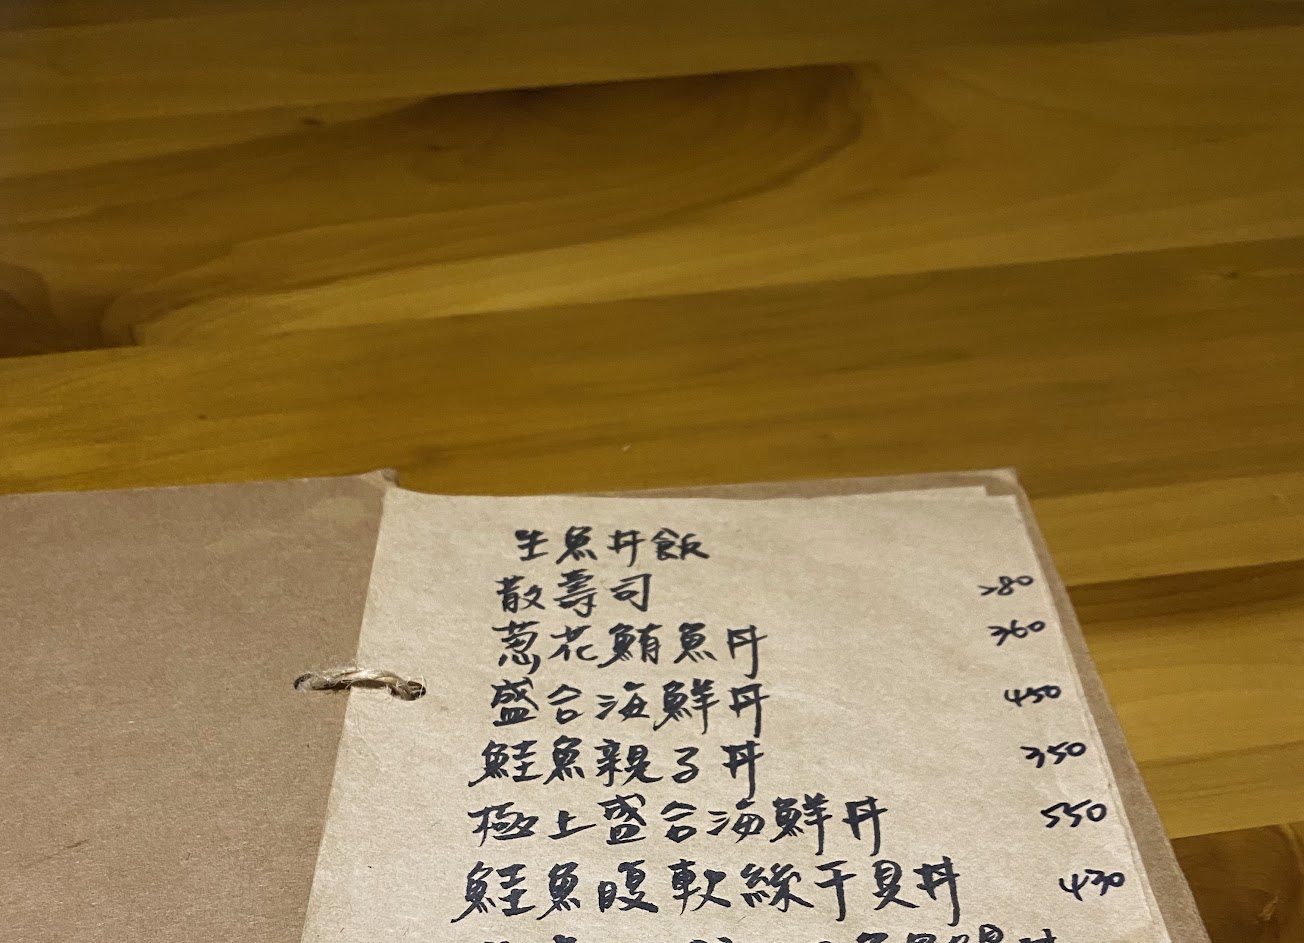 生魚丼飯
散壽司 280
葱花鮪魚丼 360
盛合海鮮丼 450
鮭魚親子丼 350
極上盛合海鮮丼 550
鮭魚腹軟絲干貝丼 430